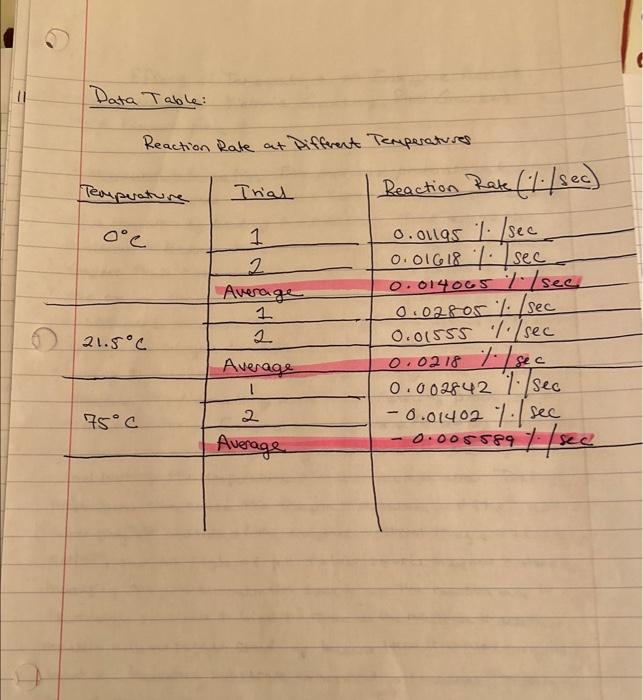 11
Data Table:
Reaction Rate at Different Temperatures
Temperature Trial Reaction Rate (%/sec)
0°C 1 0.01195 %/sec
2 0.01618 %/sec
Average 0.014065 %/sec
1 0.02805 %/sec
21.5°C 2 0.01555 %/sec
Average 0.0218 %/sec
1 0.002842 %/sec
75°C 2 -0.01402 %/sec
Average -0.005589 %/sec